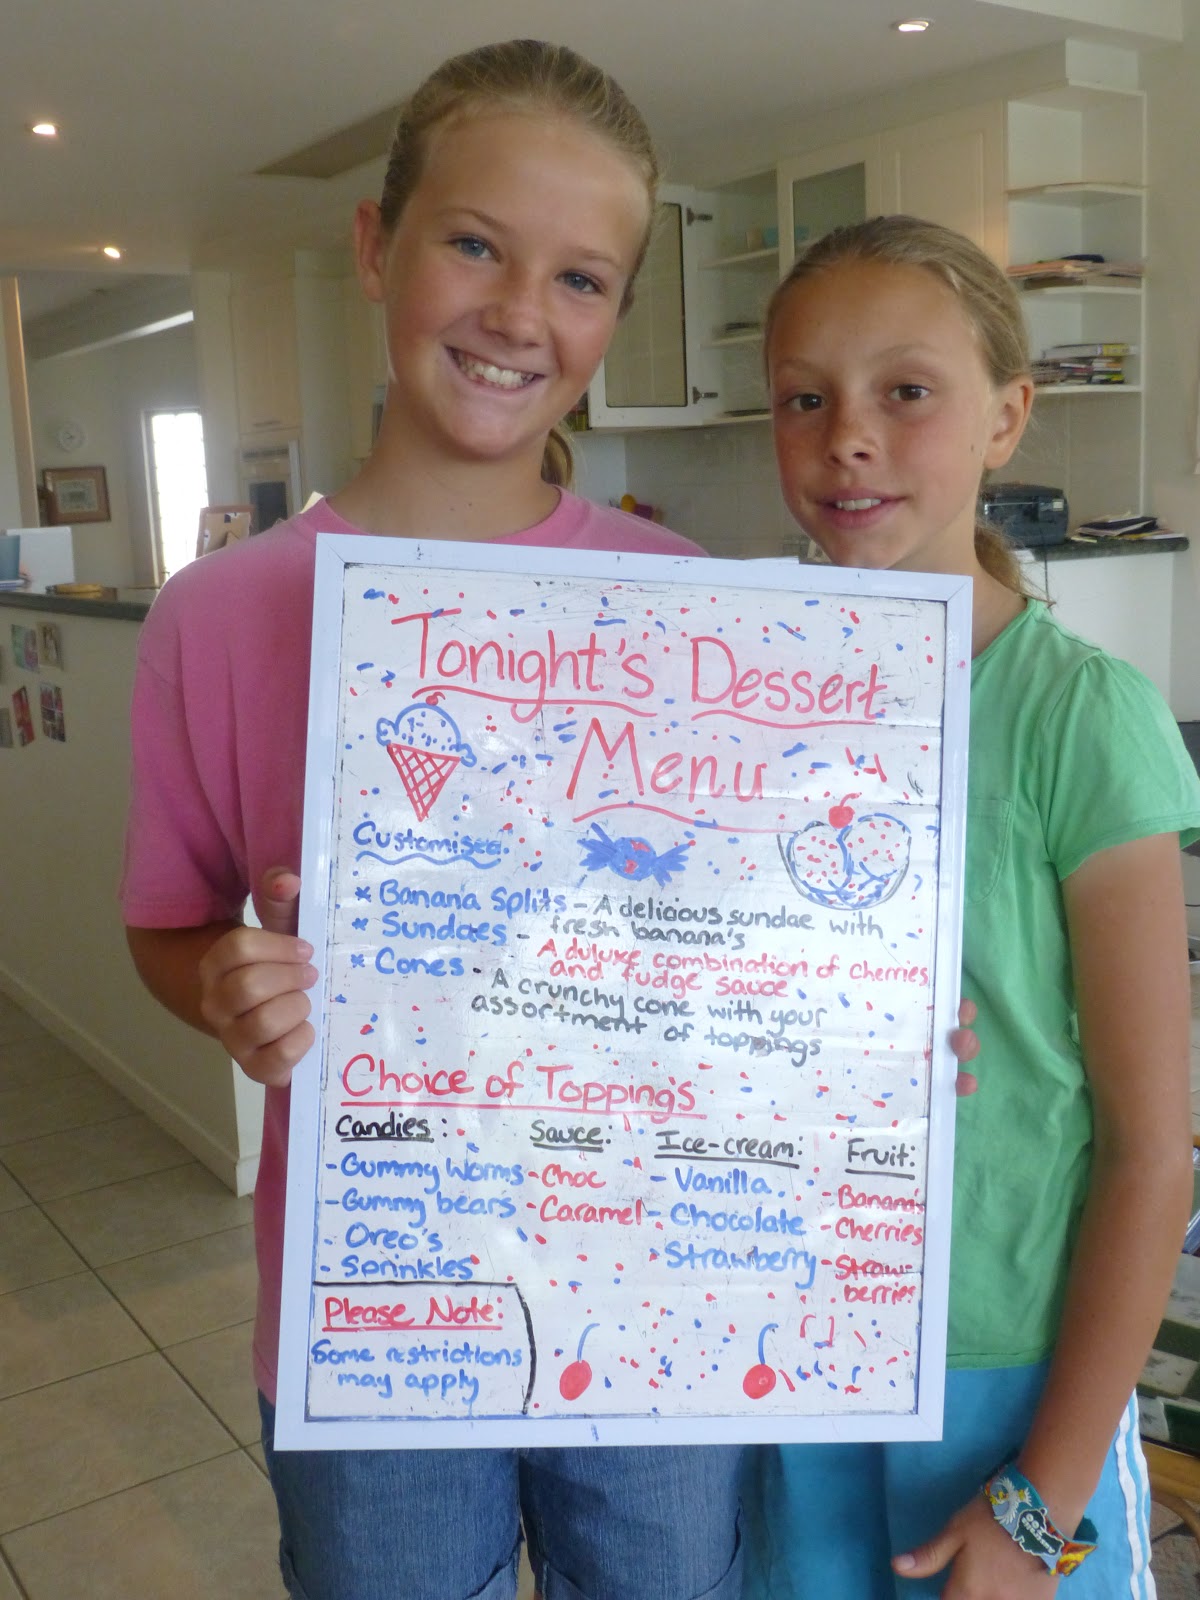 Tonight's Dessert
Menu
Customised:
* Banana Splits - A delicious sundae with
fresh banana's
* Sundaes - A duluxe combination of cherries
and fudge sauce
* Cones - A crunchy cone with your
assortment of toppings
Choice of Topping's
Candies:
- Gummy Worms
- Gummy bears
- Oreo's
- Sprinkles
Sauce:
- Choc
- Caramel
Ice-cream:
- Vanilla
- Chocolate
- Strawberry
Fruit:
- Banana's
- Cherries
- Straw-
berries
Please Note:
Some restrictions
may apply